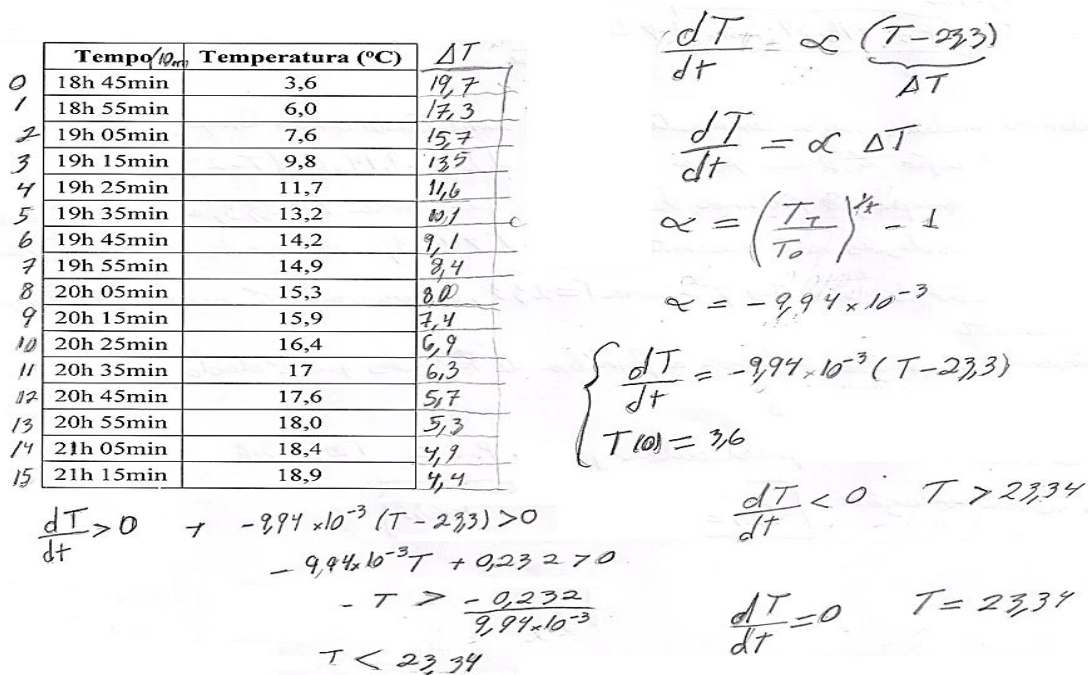 Tempo/10m Temperatura (ºC) ΔT
0 18h 45min 3,6 19,7
1 18h 55min 6,0 17,3
2 19h 05min 7,6 15,7
3 19h 15min 9,8 13,5
4 19h 25min 11,7 11,6
5 19h 35min 13,2 10,1
6 19h 45min 14,2 9,1
7 19h 55min 14,9 8,4
8 20h 05min 15,3 8,0
9 20h 15min 15,9 7,4
10 20h 25min 16,4 6,9
11 20h 35min 17 6,3
12 20h 45min 17,6 5,7
13 20h 55min 18,0 5,3
14 21h 05min 18,4 4,9
15 21h 15min 18,9 4,4
dT/dt = ∝ (T-23,3)
ΔT
dT/dt = ∝ ΔT
∝ = (T_T/T_0)^1/t - 1
∝ = -9,94 × 10^-3
dT/dt = -9,94.10^-3 (T-23,3)
T(0) = 3,6
dT/dt > 0 -9,94 ×10^-3 (T-23,3) > 0
-9,94×10^-3 T + 0,232 > 0
-T > -0,232/9,94×10^-3
T < 23,34
dT/dt < 0 T > 23,34
dT/dt = 0 T = 23,34